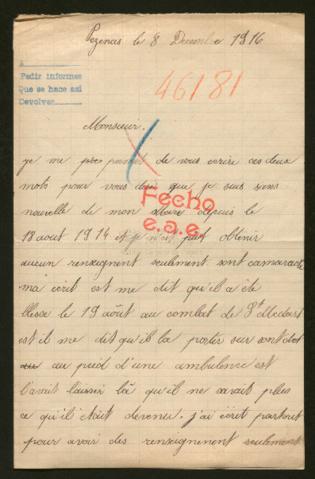 Pezenas le 8 Decembre 1916
A
Pedir informes
Que se hace asi
Devolver
46181
Monsieur.
je me permet de vous ecrire ces deux
mots pour vous dir que je suis sans
nouvelle de mon depuis le
Fecho
e.a.e.
18 aout 1914 et je n'est put obtenir
aucun renseignent seulement sont camarade
ma ecrit est me dit qu'il a ete
blesse le 19 août au combat de St Medart
est il me dit qu'il la porter sur sont dot
au pied d'une ambulence est
l'avait laisser là qu'il ne savait plus
ce qu'il etait devenu. j'ai écrit partout
pour avoir des renseignement seulement